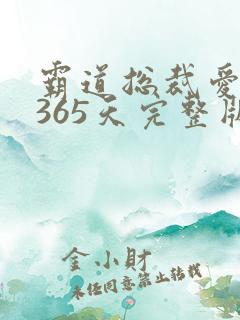 霸道总裁爱
365天完整版
金小財
未经同意禁止转载